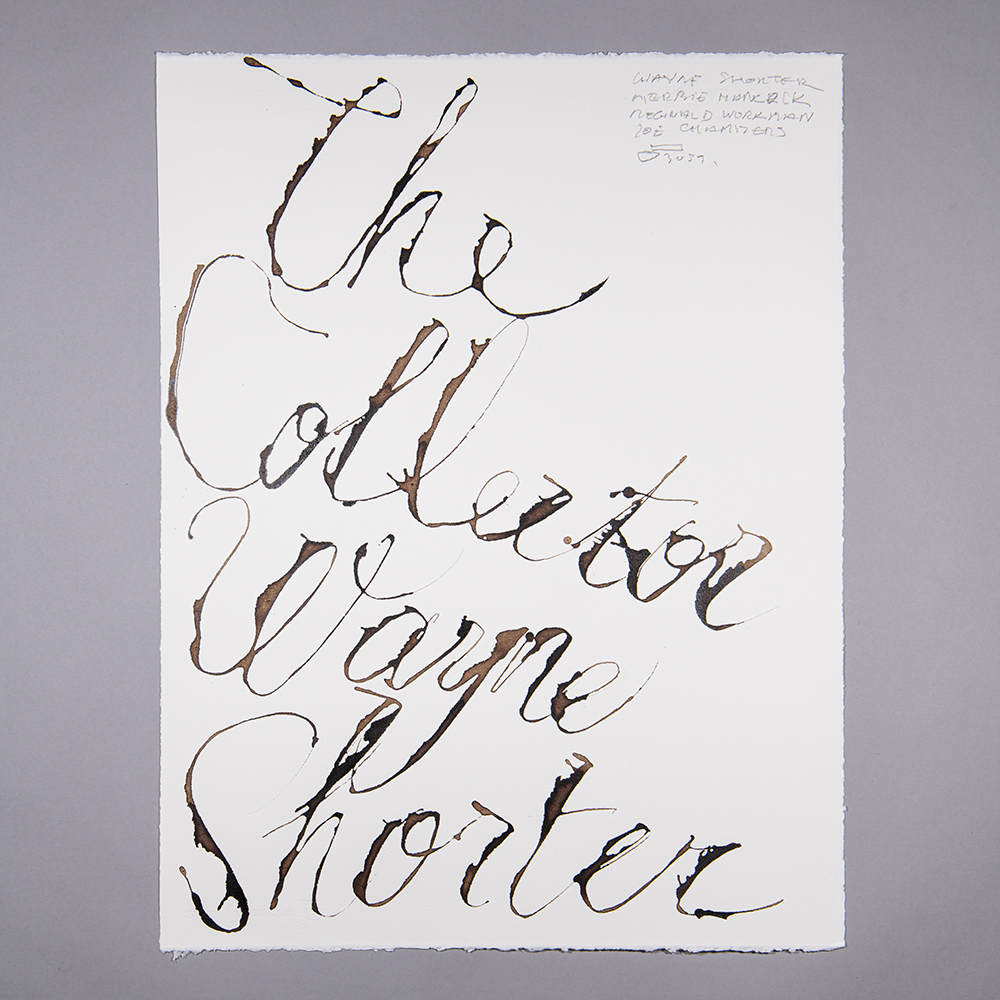 The
Collector
Wayne
Shorter
WAYNE SHORTER
HERBIE HANCOCK
REGINALD WORKMAN
JOE CHAMBERS